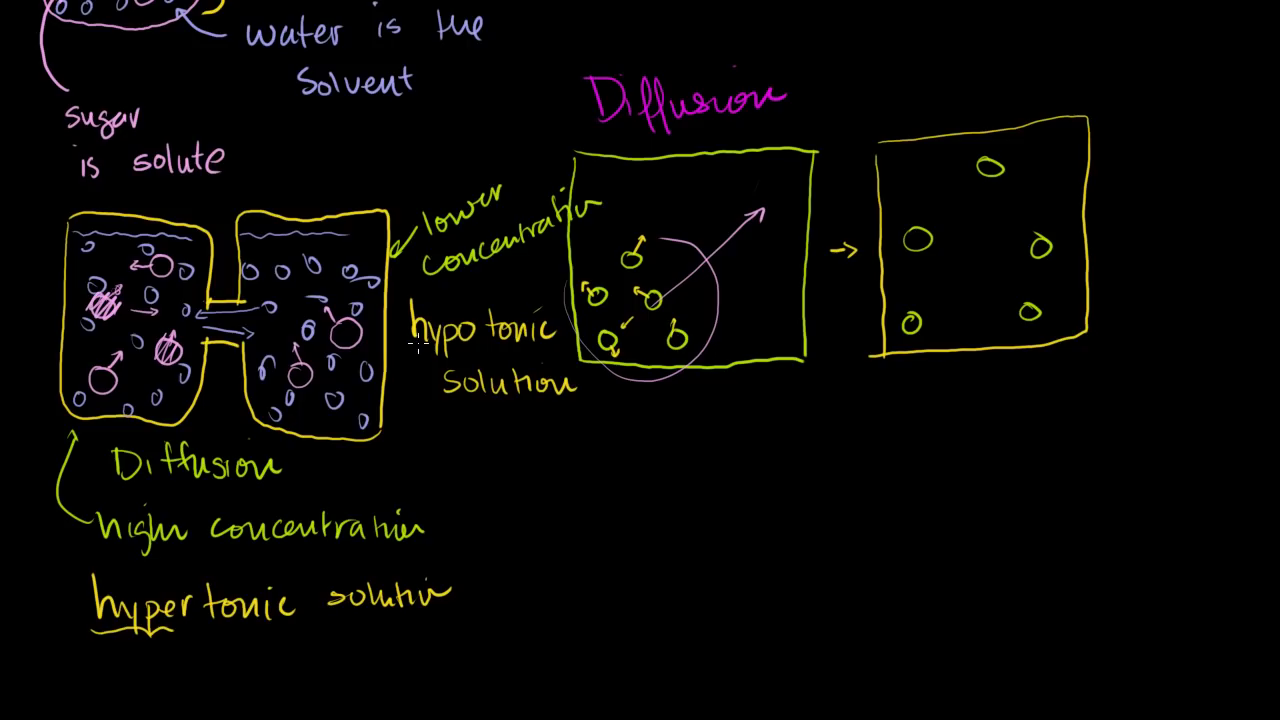 water is the
solvent
sugar
is solute
Diffusion
lower
concentration
hypotonic
solution
Diffusion
high concentration
hypertonic solution